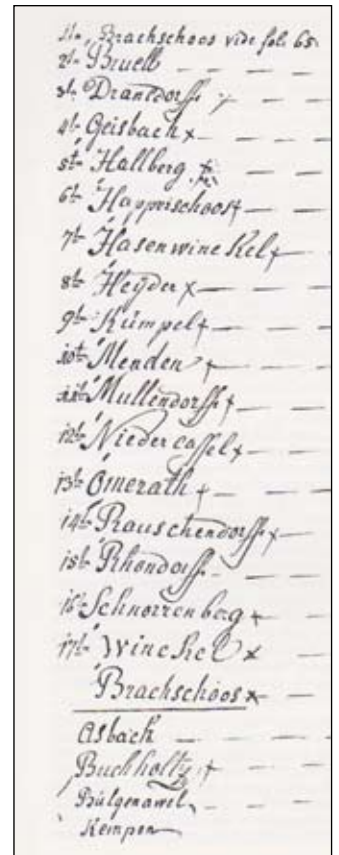 1te Brachschoos vide fol. 65
2te Bruell — — —
3te Dransdorff — —
4te Geisbach x — — —
5te Hallberg
6te Happerschoos + — —
7te Hasenwinckel + —
8te Heÿder x — — —
9te Kümpel + — — —
10te Menden + — — —
11te Mullendorff + — —
12te Niedercassel + — —
13te Ömerath + — — —
14te Rauschendorff x —
15te Rhöndorff — — —
16te Schnorrenberg + —
17te Winckel x — —
Brachschoos x — —
Asbach — — —
Buchholtz + — — —
Bülgenawel
Kempen